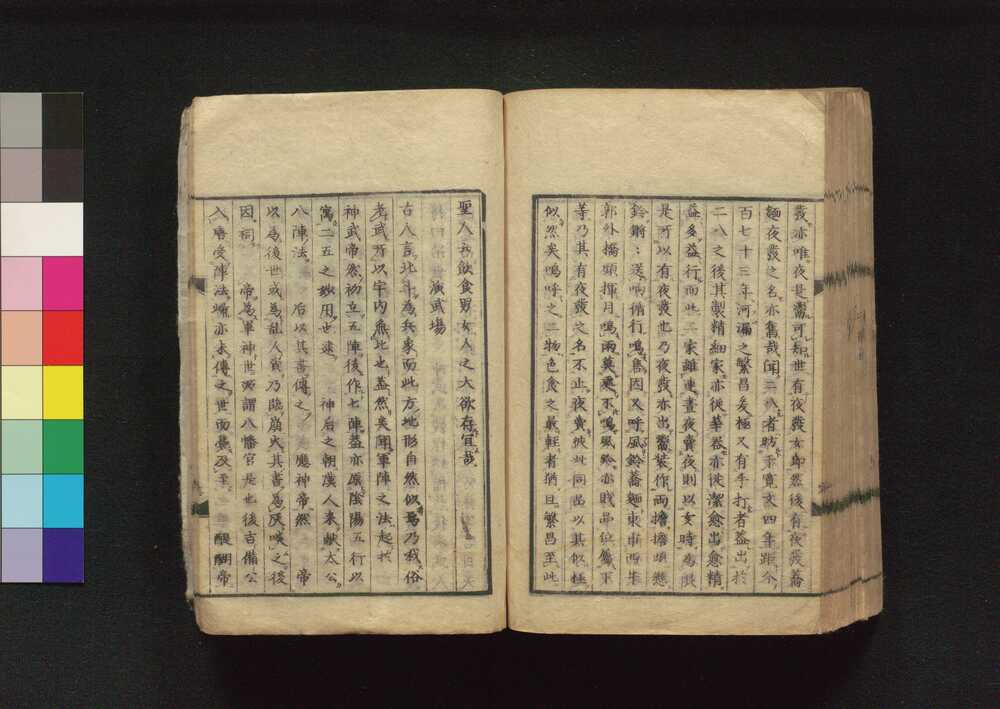 發。亦唯夜是鬻。可知世有夜發女。即然後有夜發蕎
麵。夜發之名。亦舊哉。聞二八者。昉乎寛文四年。距今
百七十三年。河漏之繁昌爰極。又有手打者。蓋出於
二八之後。其製精細。家亦從華。器亦從潔。愈出愈精。
益多益行。而此二家。離連晝夜賣。夜則以女時爲限。
是所以有夜發也。乃夜發亦出鬻裝作兩擔。擔頭懸
鈴。鏘鏘送响。循行鳴售。因又呼風鈴蕎麵。東串西串。
郭外橋頭。揮月鳴雨。莫來不鳴。風鈴亦賎品。位屬下
等。乃其有夜發之名不止夜賣。彼此同出。以其似極
似然矣。嗚呼之二物。色食之最輕者。猶且繁昌至此。
聖人云。飲食男女。人之大欲存。宜哉。
演武場
古人言。北斗爲兵象。而此方地形自然似焉。乃我俗
考武所以宇内無比也。蓋然矣。聞軍陣之法。起於
神武帝。然初立五陣。後作七陣。蓋亦原陰陽五行以
寓二五之妙用也。逮 神后之朝。漢人來獻太公
八陣法。 后以其書傳之 應神帝。然 帝
以爲後世或爲乱人資。乃臨崩火其書爲灰喫之。後
因祠 帝爲軍神。世所謂八幡宮是也。後吉備公
入唐受陣法。嫡亦未傳之世而薨。及至 醍醐帝